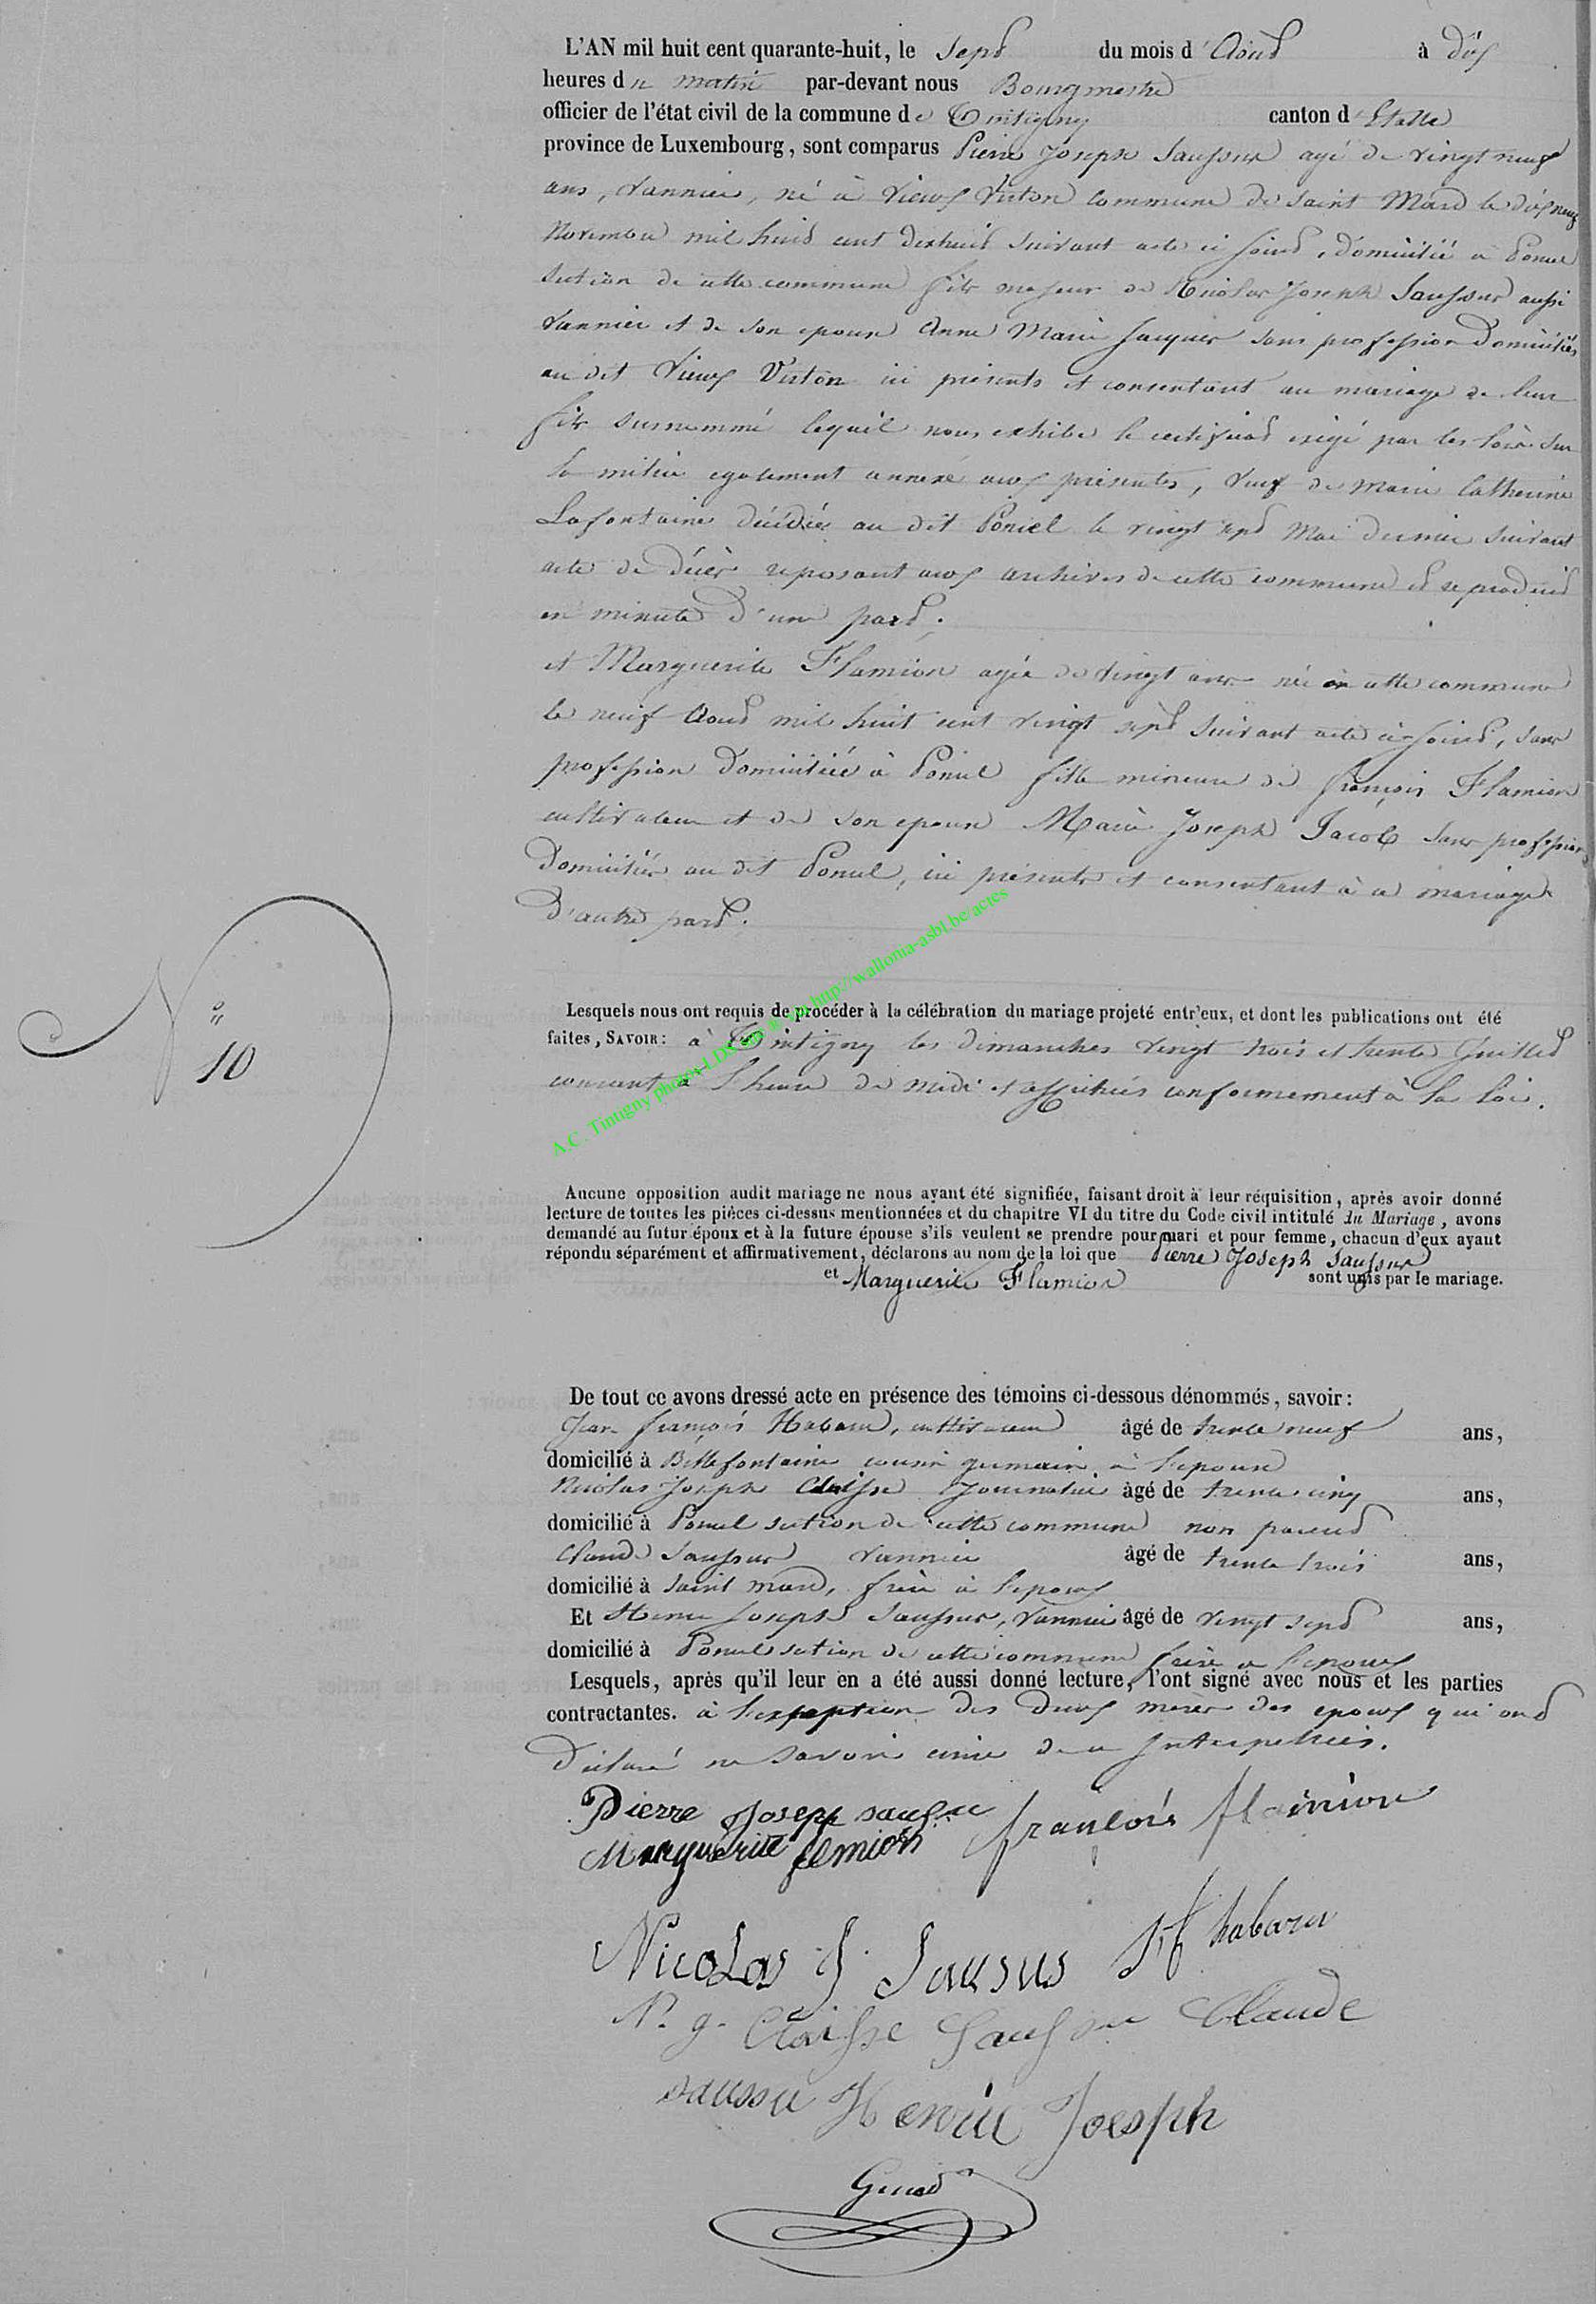 L'AN mil huit cent quarante-huit, le sept du mois d'Août à dix
heures du matin par-devant nous Bourgmestre
officier de l'état civil de la commune de Tintigny canton d'Etalle
province de Luxembourg, sont comparus Pierre Joseph Saussus agé de vingt neuf
ans, vannier, né à Vieux Virton commune de Saint Mard le dix neuf
Novembre mil huit cent dixhuit suivant acte ci joint, domicilié à Poncel
section de cette commune fils majeur de Nicolas Joseph Saussus aussi
vannier et de son epouse Anne Marie Jacques sans profession Domiciliés
au dit Vieux Virton ici présents et consentant au mariage de leur
fils surnommé lequel nous exhibe le certificat exigé par les lois sur
la milice egalement annexé aux présentes, veuf de Marie Catherine
Lafontaine décédée au dit Poncel le vingt sept Mai dernier suivant
acte de décès reposant aux archives de cette commune et reproduit
en minute d'une part.
et Marguerite Flamion agée de vingt ans née en cette commune
le neuf Aout mil huit cent vingt sept suivant acte ci joint, sans
profession Domiciliée à Poncel fille mineure de françois Flamion
cultivateur et de son epouse Marie Joseph Jacob sans profession
Domiciliés au dit Poncel, ici présents et consentant à ce mariage
D'autre part.
N° 10
Lesquels nous ont requis de procéder à la célébration du mariage projeté entr'eux, et dont les publications ont été
faites, SAVOIR: à Tintigny les dimanches vingt trois et trente Juillet
courant à l'heure de midi et affichées conformement à la loi.
A.C. Tintigny photos LDS http://wallonia-asbl.be/actes
Aucune opposition audit mariage ne nous ayant été signifiée, faisant droit à leur réquisition, après avoir donné
lecture de toutes les pièces ci-dessus mentionnées et du chapitre VI du titre du Code civil intitulé du Mariage, avons
demandé au futur époux et à la future épouse s'ils veulent se prendre pour mari et pour femme, chacun d'eux ayant
répondu séparément et affirmativement, déclarons au nom de la loi que Pierre Joseph Saussus
et Marguerite Flamion sont unis par le mariage.
De tout ce avons dressé acte en présence des témoins ci-dessous dénommés, savoir:
Jean françois Habaru, cultivateur âgé de trente neuf ans,
domicilié à Bellefontaine cousin germain à l'epouse
Nicolas Joseph Claisse Journalier âgé de trente cinq ans,
domicilié à Poncel section de cette commune non parent
Claude Saussus vannier âgé de trente trois ans,
domicilié à Saint mard, frère à l'epoux
Et Henri Joseph Saussus, vannier âgé de vingt sept ans,
domicilié à Poncel section de cette commune frère à l'epoux
Lesquels, après qu'il leur en a été aussi donné lecture, l'ont signé avec nous et les parties
contractantes. à l'exception des deux mères des epoux qui ont
Déclaré ne savoir écrire de ce Interpellées.
Pierre Joseph saussu françois flamion
Marguerite flemion
Nicolas J Sausus Jf habaru
N. J. Claisse Saussu Claude
saussu Henri Joesph